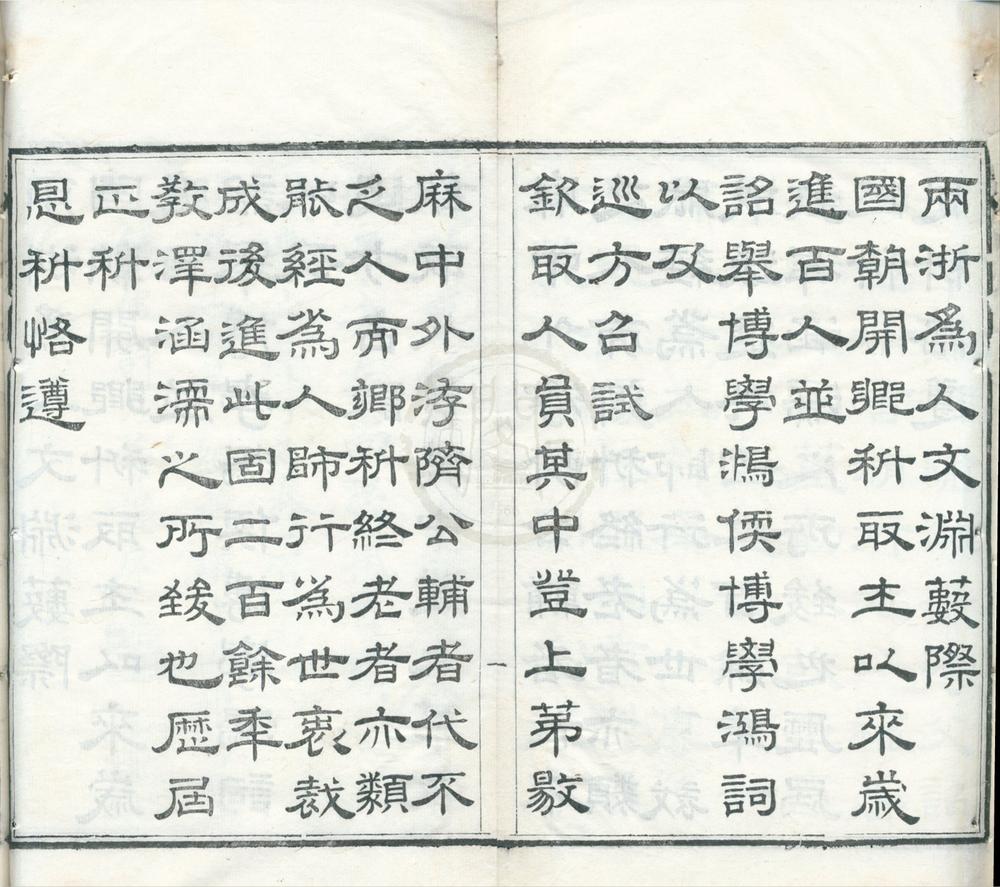 兩浙爲人文淵藪際
國朝開鄉科取士以來歲
進百人並
詔舉博學鴻儒博學鴻詞
以及
巡方召試
欽取人員其中登上第敭
厤中外洊隮公輔者代不
乏人而鄉科終老者亦類
能經爲人師行爲世表裁
成後進此固二百餘年
教澤涵濡之所致也歷屆
正科
恩科恪遵
一